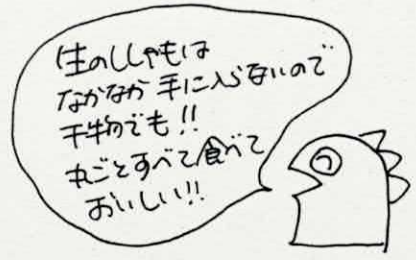 生のししゃもは
なかなか手に入らないので
干物でも!!
丸ごとすべて食べて
おいしい!!